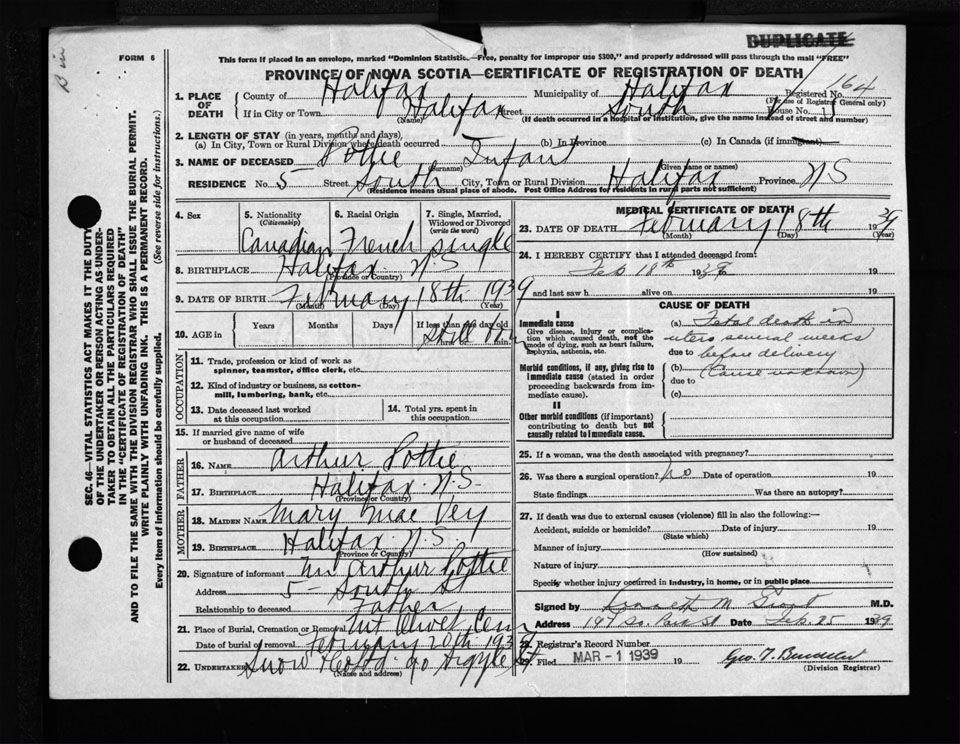 DUPLICATE
FORM 6
This form if placed in an envelope, marked "Dominion Statistic.—Free, penalty for improper use $300," and properly addressed will pass through the mail "FREE"
PROVINCE OF NOVA SCOTIA—CERTIFICATE OF REGISTRATION OF DEATH
SEC. 46—VITAL STATISTICS ACT MAKES IT THE DUTY
OF THE UNDERTAKER OR PERSON ACTING AS UNDER-
TAKER TO OBTAIN ALL THE PARTICULARS REQUIRED
IN THE "CERTIFICATE OF REGISTRATION OF DEATH"
AND TO FILE THE SAME WITH THE DIVISION REGISTRAR WHO SHALL ISSUE THE BURIAL PERMIT.
WRITE PLAINLY WITH UNFADING INK. THIS IS A PERMANENT RECORD.
Every item of information should be carefully supplied. (See reverse side for instructions.)
1. PLACE OF DEATH
County of Halifax Municipality of Halifax Registered No. 164
(For use of Registrar General only)
If in City or Town Halifax Street South House No. 5
(Name) (If death occurred in a hospital or institution, give the name instead of street and number)
2. LENGTH OF STAY (in years, months and days),
(a) In City, Town or Rural Division where death occurred (b) In Province (c) In Canada (if immigrant)
3. NAME OF DECEASED Pottie Infant
(Surname) (Given name or names)
RESIDENCE No. 5 Street South City, Town or Rural Division Halifax Province NS
(Residence means usual place of abode. Post Office Address for residents in rural parts not sufficient)
4. Sex 5. Nationality (Citizenship) 6. Racial Origin 7. Single, Married, Widowed or Divorced (write the word)
Canadian French single
8. BIRTHPLACE Halifax N.S.
(Province or Country)
9. DATE OF BIRTH February 18th 1939
(Month) (Day) (Year)
10. AGE in Years Months Days If less than one day old
hrs. min.
Still born
OCCUPATION
11. Trade, profession or kind of work as
spinner, teamster, office clerk, etc.
12. Kind of industry or business, as cotton-
mill, lumbering, bank, etc.
13. Date deceased last worked
at this occupation
14. Total yrs. spent in
this occupation
15. If married give name of wife
or husband of deceased
FATHER
16. NAME Arthur Pottie
17. BIRTHPLACE Halifax N.S.
(Province or Country)
MOTHER
18. MAIDEN NAME Mary Mae Vey
19. BIRTHPLACE Halifax N.S.
(Province or Country)
20. Signature of informant Mr Arthur Pottie
Address 5 South St
Relationship to deceased Father
21. Place of Burial, Cremation or Removal Mt Olivet Cem
Date of burial or removal February 20th 1939
22. UNDERTAKER Snow & Co Ltd 90 Argyle St
(Name and address)
MEDICAL CERTIFICATE OF DEATH
23. DATE OF DEATH February 18th 1939
(Month) (Day) (Year)
24. I HEREBY CERTIFY that I attended deceased from:
Feb 18th 1939 to 19
and last saw h alive on 19
CAUSE OF DEATH
I
Immediate cause
Give disease, injury or complica-
tion which caused death, not the
mode of dying, such as heart failure,
asphyxia, asthenia, etc.
Morbid conditions, if any, giving rise to
immediate cause (stated in order
proceeding backwards from im-
mediate cause).
II
Other morbid conditions (if important)
contributing to death but not
causally related to immediate cause.
(a) Fetal death in
utero several weeks
due to before delivery
(b) (Cause unknown)
due to
(c)
25. If a woman, was the death associated with pregnancy?
26. Was there a surgical operation? no Date of operation 19
State findings Was there an autopsy?
27. If death was due to external causes (violence) fill in also the following:—
Accident, suicide or homicide? Date of injury 19
(State which)
Manner of injury
(How sustained)
Nature of injury
Specify whether injury occurred in industry, in home, or in public place
Signed by Kenneth M Grant M.D.
Address 197 So. Park St Date Feb. 25 1939
28. Registrar's Record Number
29. Filed MAR - 1 1939 19
(Division Registrar)